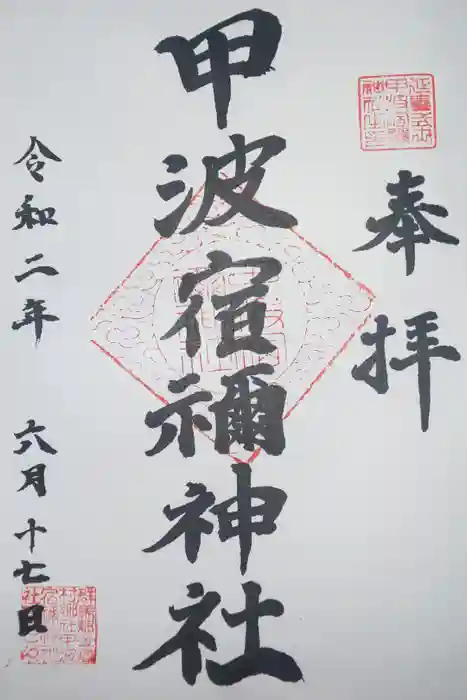 奉拝
甲波宿禰神社
令和二年 六月十七日